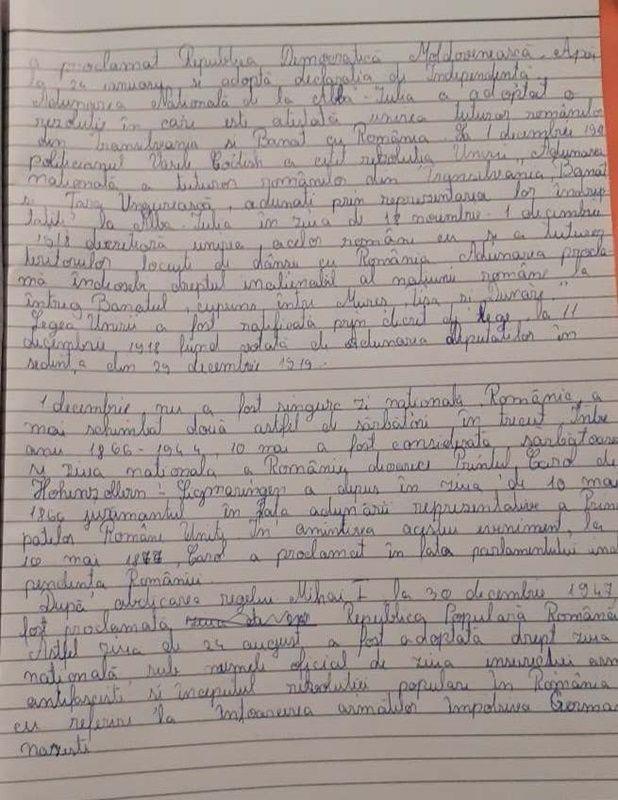 a proclamat Republica Democratică Moldovenească. Apoi
la 24 ianuary se adoptă declaratia de Independentă.
Adunarea Natională de la Alba-Iulia a adoptat o
rezolutie în care este atestată unirea tuturor românilor
din Transilvania si Banat cu România. La 1 decembrie 191
politicianul Vasile Goldis a citit rezolutia Unirii, „Adunarea
natională a tuturor românilor din Transilvania, Banat
si Țara Ungurească, adunati prin reprezentantii lor îndrep
tatiti la Alba-Iulia în ziua de 18 noiembrie-1 decembrie
1918 decretează unirea acelor români cu si a tuturor
teritoriilor locuite de dânsii cu România. Adunarea procla
mă îndeosebi dreptul inalienabil al natiunii române la
întreg Banatul, cuprins între Mures, Tisa si Dunăre."
Legea Unirii a fost ratificată prin decret de lege la 11
decembrie 1918 fiind votată de Adunarea deputatilor în
sedinta din 29 decembrie 1919.
1 decembrie nu a fost singura zi natională România, a
mai schimbat două astfel de sărbători în trecut. Între
anii 1866-1944, 10 mai a fost considerată sărbătoare
si ziua natională a României deoarece Printul Carol de
Hohenzollern-Sigmaringen a depus în ziua de 10 mai
1866 jurământul în fata adunării reprezentative a Prin
patelor Române Unite. În amintirea acestui eveniment, la
10 mai 1877, Carol a proclamat în fata parlamentului inde
pendenta României.
După abdicarea regelui Mihai I la 30 decembrie 1947,
fost proclamată Republica Populară Română
Astfel ziua de 24 august a fost adoptată drept ziua
natională, sub numele oficial de ziua insurectiei arm
antifasciste si începutul revolutiei populare în România
cu referire la întoarcerea armatelor împotriva Germa
naziste